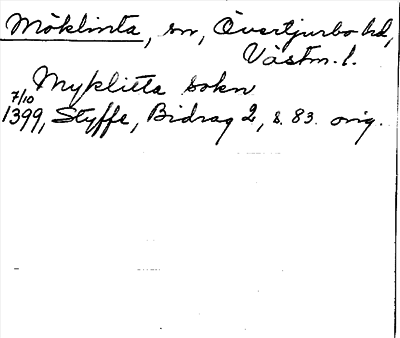 Möklinta, sn, Övertjurbo hd,
Västm. l.
Myklitta sokn
7/10
1399, Styffe, Bidrag 2, s. 83. orig.